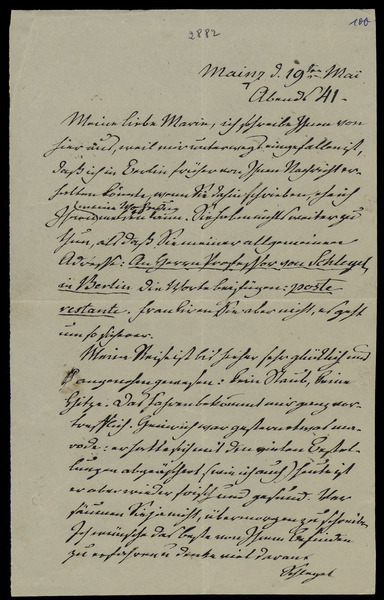 2882
100
Mainz d. 19ten Mai
Abends 41.
Meine liebe Marie, ich schreibe Ihnen von
hier aus, weil mir unterwegs eingefallen ist,
daß ich in Berlin früher von Ihnen Nachricht er-
halten könnte, wenn Sie dahin schrieben, ehe ich
meine Wohnung
Ihnen melden kann. Sie haben nichts weiter zu
thun, als daß Sie meiner allgemeinen
Adresse: An Herrn Professor von Schlegel
in Berlin die Worte beifügen: poste
restante. frankiren Sie aber nicht, es geht
um so sicherer.
Meine Reise ist bis hieher sehr glücklich und
angenehm gewesen: kein Staub, keine
Hitze. Das Fahren bekommt mir ganz vor-
trefflich. Heinrich war gestern etwas ma-
rode: er hatte sich mit den vielen Bestel-
lungen abgeäschert (wie ich auch) heute ist
er aber wieder frisch und gesund. Ver-
säumen Sie ja nicht, übermorgen zu schreiben
Ich wünsche das beste von Ihrem Befinden
zu erfahren u denke viel daran.
Schlegel